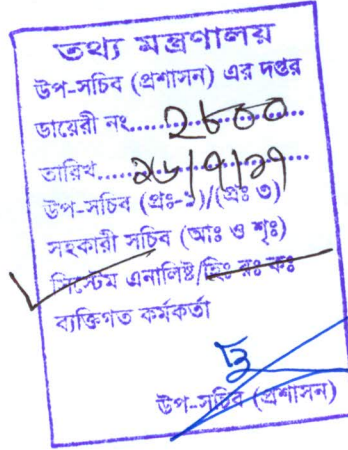 তথ্য মন্ত্রণালয়
উপ-সচিব (প্রশাসন) এর দপ্তর
ডায়েরী নং.....২৮০০.....
তারিখ.....
উপ-সচিব (প্রঃ-১)/(প্রঃ ৩)
সহকারী সচিব (আঃ ও শৃঃ)
সিস্টেম এনালিষ্ট/হিঃ রঃ কঃ
ব্যক্তিগত কর্মকর্তা
উপ-সচিব (প্রশাসন)